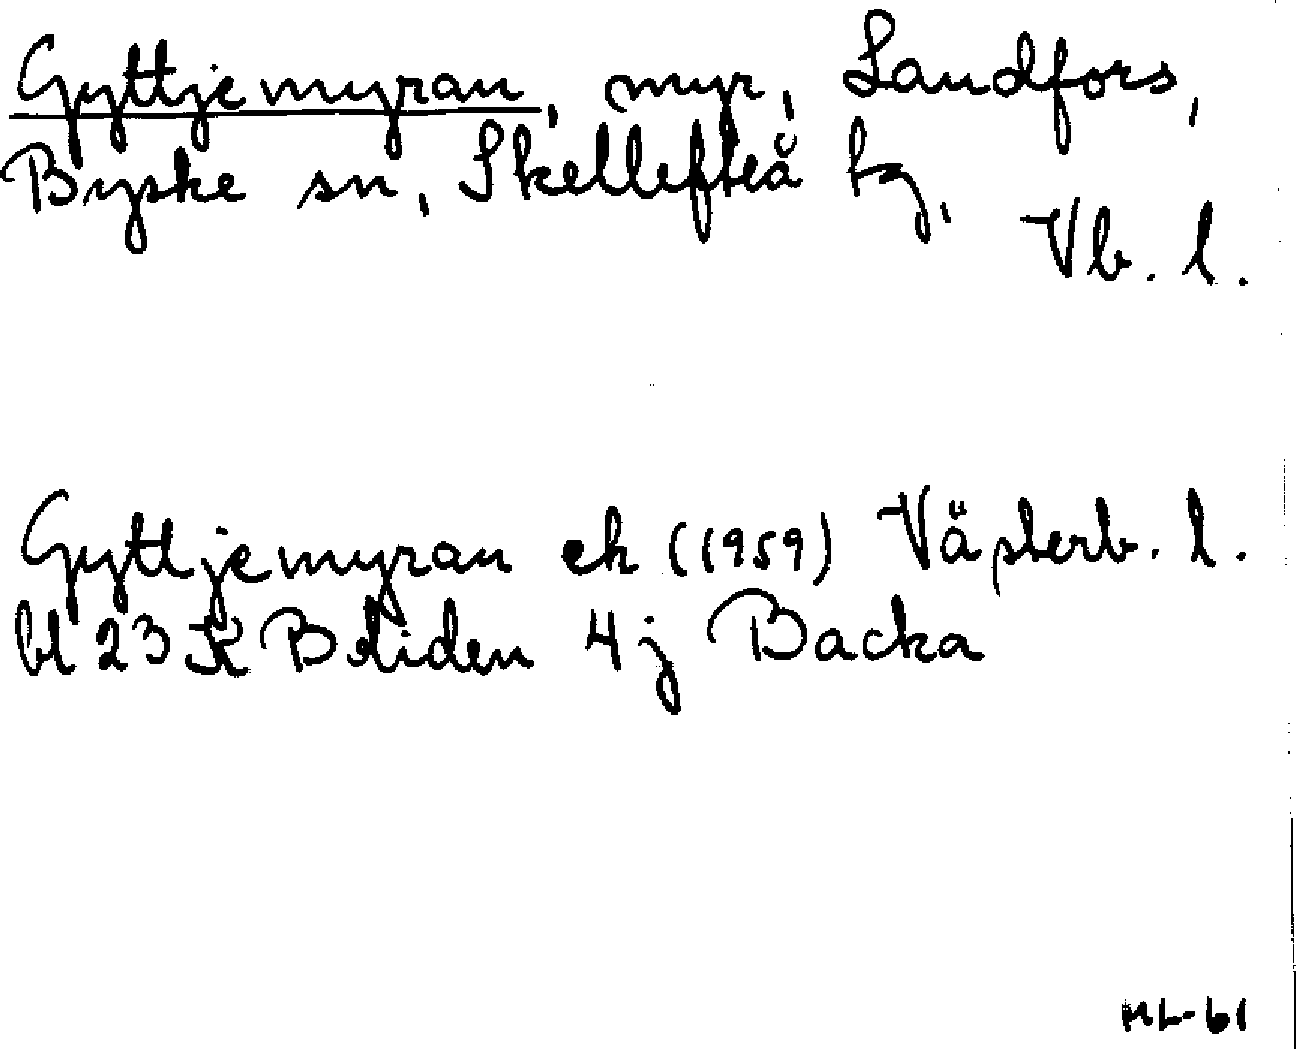 Gyttjemyran, myr, Landfors,
Byske sn, Skellefteå tg,
Vb. l.
Gyttjemyran ek (1959) Västerb. l.
bl 23 K Boliden 4j Backa
ML-61